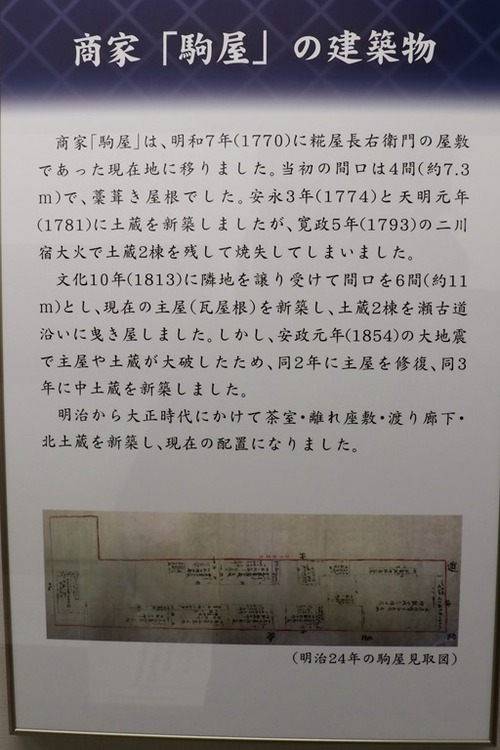 商家「駒屋」の建築物
商家「駒屋」は、明和7年(1770)に糀屋長右衛門の屋敷
であった現在地に移りました。当初の間口は4間(約7.3
m)で、藁葺き屋根でした。安永3年(1774)と天明元年
(1781)に土蔵を新築しましたが、寛政5年(1793)の二川
宿大火で土蔵2棟を残して焼失してしまいました。
文化10年(1813)に隣地を譲り受けて間口を6間(約11
m)とし、現在の主屋(瓦屋根)を新築し、土蔵2棟を瀬古道
沿いに曳き屋しました。しかし、安政元年(1854)の大地震
で主屋や土蔵が大破したため、同2年に主屋を修復、同3
年に中土蔵を新築しました。
明治から大正時代にかけて茶室・離れ座敷・渡り廊下・
北土蔵を新築し、現在の配置になりました。
(明治24年の駒屋見取図)